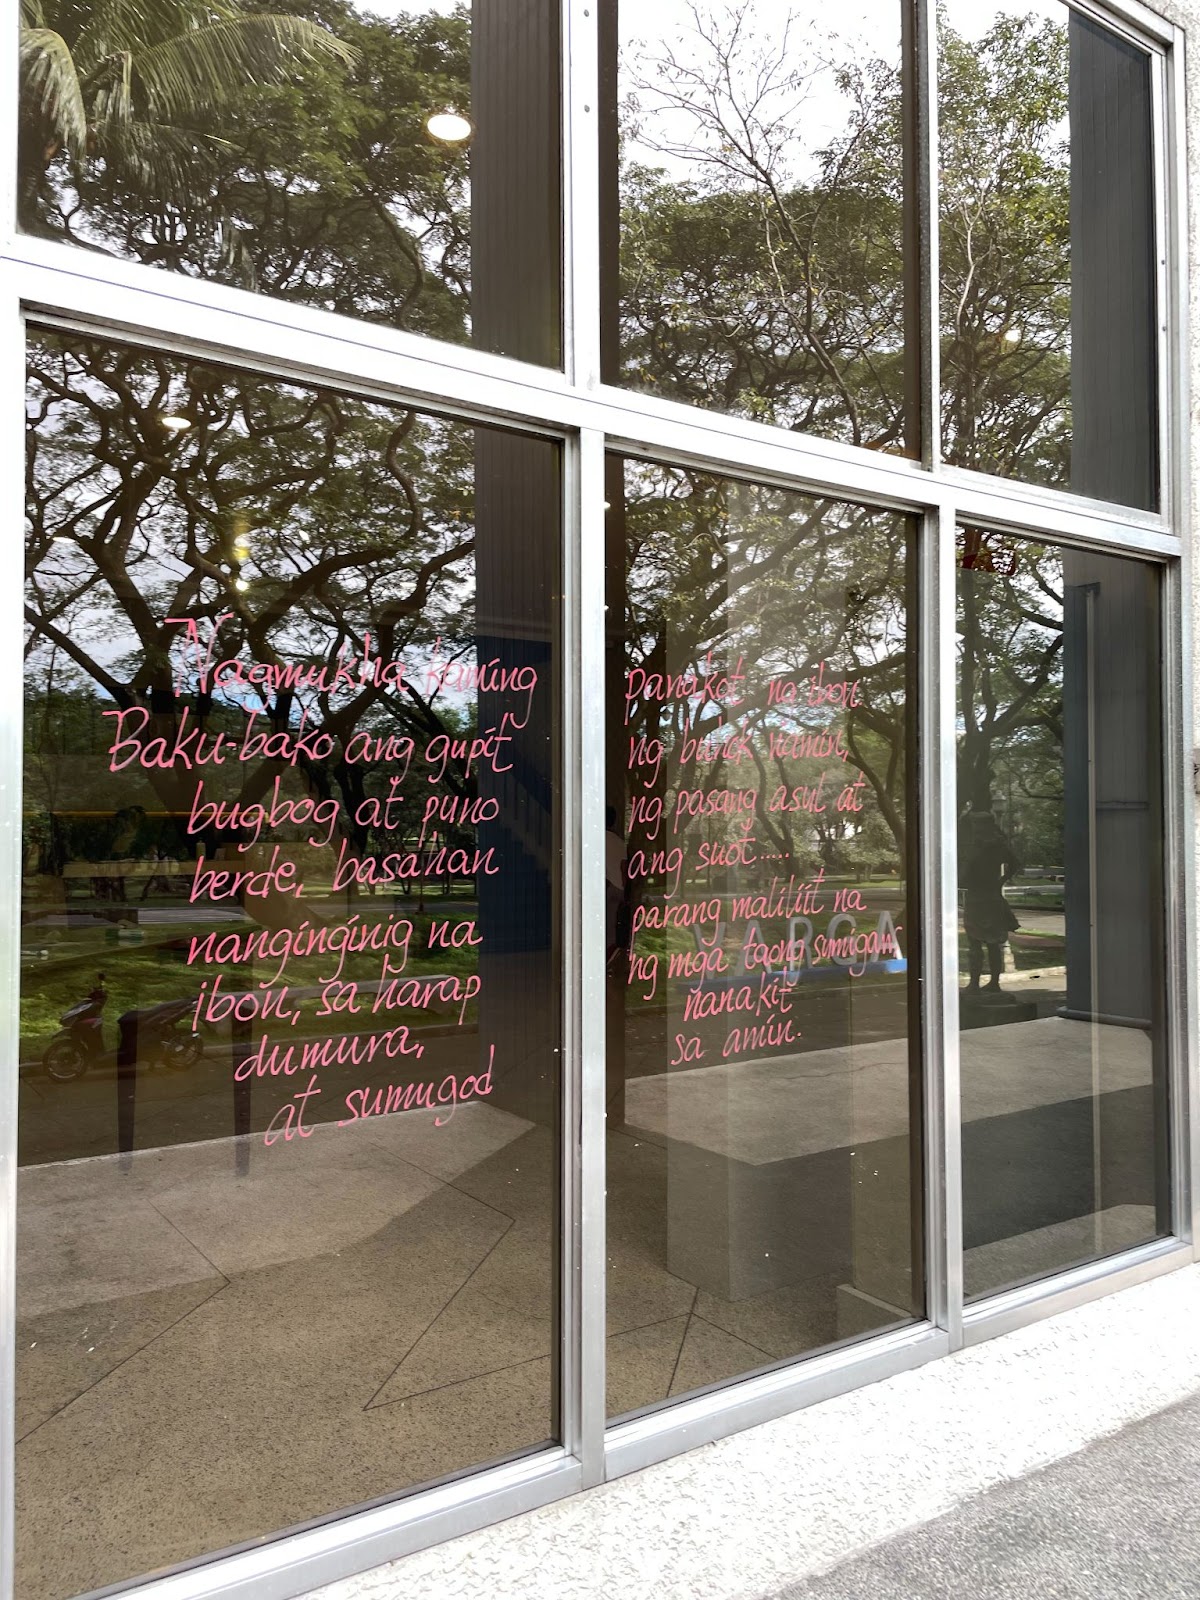 Nagmukha kaming panakot na ibon
Baku-bako ang gupit ng buhok namin,
bugbog at puno ng pasang asul at
berde, basahan ang suot.....
nanginginig na parang maliliit na
ibon, sa harap ng mga taong sumigaw
dumura, nanakit
at sumugod sa amin.
VARGA